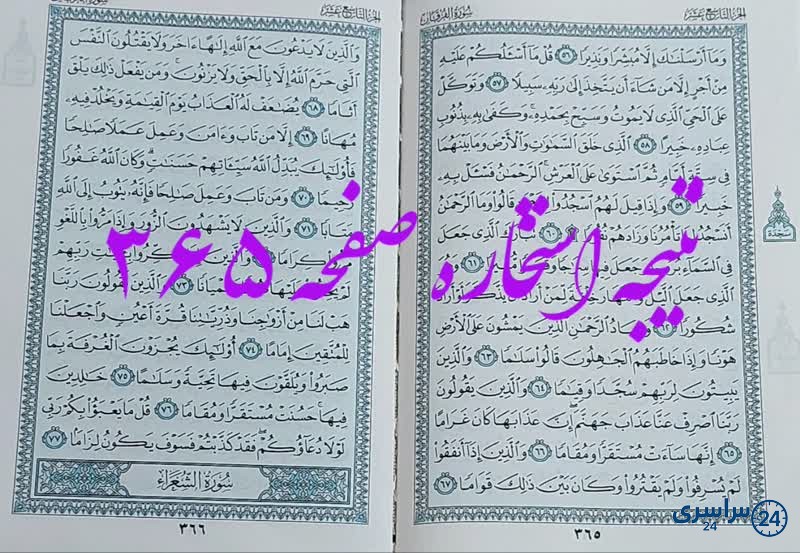 الجزء التاسع عشر
سورة الفرقان
وَمَا أَرْسَلْنَاكَ إِلَّا مُبَشِّرًا وَنَذِيرًا ۝٥٦ قُلْ مَا أَسْأَلُكُمْ عَلَيْهِ
مِنْ أَجْرٍ إِلَّا مَن شَاءَ أَن يَتَّخِذَ إِلَىٰ رَبِّهِ سَبِيلًا ۝٥٧ وَتَوَكَّلْ
عَلَى الْحَيِّ الَّذِي لَا يَمُوتُ وَسَبِّحْ بِحَمْدِهِ ۚ وَكَفَىٰ بِهِ بِذُنُوبِ
عِبَادِهِ خَبِيرًا ۝٥٨ الَّذِي خَلَقَ السَّمَاوَاتِ وَالْأَرْضَ وَمَا بَيْنَهُمَا
فِي سِتَّةِ أَيَّامٍ ثُمَّ اسْتَوَىٰ عَلَى الْعَرْشِ ۚ الرَّحْمَٰنُ فَسْئَلْ بِهِ
خَبِيرًا ۝٥٩ وَإِذَا قِيلَ لَهُمُ اسْجُدُوا قَالُوا وَمَا الرَّحْمَٰنُ
أَنَسْجُدُ لِمَا تَأْمُرُنَا وَزَادَهُمْ ۝٦٠ تَبَارَكَ الَّذِي جَعَلَ
فِي السَّمَاءِ وَجَعَلَ فِيهَا ۝٦١
الَّذِي جَعَلَ اللَّيْلَ أَرَادَ
شُكُورًا ۝٦٢ وَعِبَادُ الرَّحْمَٰنِ الَّذِينَ يَمْشُونَ عَلَى الْأَرْضِ
هَوْنًا وَإِذَا خَاطَبَهُمُ الْجَاهِلُونَ قَالُوا سَلَامًا ۝٦٣ وَالَّذِينَ
يَبِيتُونَ لِرَبِّهِمْ سُجَّدًا وَقِيَامًا ۝٦٤ وَالَّذِينَ يَقُولُونَ
رَبَّنَا اصْرِفْ عَنَّا عَذَابَ جَهَنَّمَ ۖ إِنَّ عَذَابَهَا كَانَ غَرَامًا
۝٦٥ إِنَّهَا سَاءَتْ مُسْتَقَرًّا وَمُقَامًا ۝٦٦ وَالَّذِينَ إِذَا أَنفَقُوا
لَمْ يُسْرِفُوا وَلَمْ يَقْتُرُوا وَكَانَ بَيْنَ ذَٰلِكَ قَوَامًا ۝٦٧
٣٦٥
الجزء التاسع عشر
وَالَّذِينَ لَا يَدْعُونَ مَعَ اللَّهِ إِلَٰهًا آخَرَ وَلَا يَقْتُلُونَ النَّفْسَ
الَّتِي حَرَّمَ اللَّهُ إِلَّا بِالْحَقِّ وَلَا يَزْنُونَ ۚ وَمَن يَفْعَلْ ذَٰلِكَ يَلْقَ
أَثَامًا ۝٦٨ يُضَاعَفْ لَهُ الْعَذَابُ يَوْمَ الْقِيَامَةِ وَيَخْلُدْ فِيهِ
مُهَانًا ۝٦٩ إِلَّا مَن تَابَ وَءَامَنَ وَعَمِلَ عَمَلًا صَالِحًا
فَأُولَٰئِكَ يُبَدِّلُ اللَّهُ سَيِّئَاتِهِمْ حَسَنَاتٍ ۗ وَكَانَ اللَّهُ غَفُورًا
رَّحِيمًا ۝٧٠ وَمَن تَابَ وَعَمِلَ صَالِحًا فَإِنَّهُ يَتُوبُ إِلَى اللَّهِ
مَتَابًا ۝٧١ وَالَّذِينَ لَا يَشْهَدُونَ الزُّورَ وَإِذَا مَرُّوا بِاللَّغْوِ
مَرُّوا كِرَامًا ۝٧٢ وَالَّذِينَ إِذَا ذُكِّرُوا رَبِّهِمْ
لَمْ ۝٧٣ وَالَّذِينَ يَقُولُونَ رَبَّنَا
هَبْ لَنَا مِنْ أَزْوَاجِنَا وَذُرِّيَّاتِنَا قُرَّةَ أَعْيُنٍ وَاجْعَلْنَا
لِلْمُتَّقِينَ إِمَامًا ۝٧٤ أُولَٰئِكَ يُجْزَوْنَ الْغُرْفَةَ بِمَا
صَبَرُوا وَيُلَقَّوْنَ فِيهَا تَحِيَّةً وَسَلَامًا ۝٧٥ خَالِدِينَ
فِيهَا ۚ حَسُنَتْ مُسْتَقَرًّا وَمُقَامًا ۝٧٦ قُلْ مَا يَعْبَؤُا بِكُمْ رَبِّي
لَوْلَا دُعَاؤُكُمْ ۖ فَقَدْ كَذَّبْتُمْ فَسَوْفَ يَكُونُ لِزَامًا ۝٧٧
سُورَةُ الشُّعَرَاءِ
٣٦٦
نتیجه استخاره صفحه ۳۶۵
سراسری 24
24